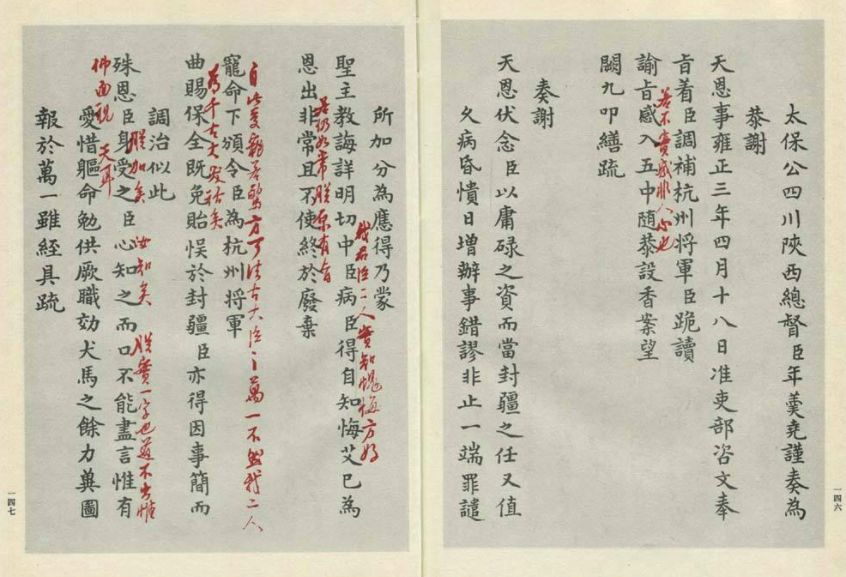 太保公四川陝西總督臣年羹堯謹奏為
恭謝
天恩事雍正三年四月十八日准吏部咨文奉
旨着臣調補杭州將軍臣跪讀
若不實感非人心也
諭旨感入五中隨恭設香案望
闕九叩繕疏
奏謝
天恩伏念臣以庸碌之資而當封疆之任又值
久病昏憒日增辦事錯謬非止一端罪譴
一四六
所加分為應得乃蒙
我君臣二人實知愧悔方好
聖主教誨詳明切中臣病臣得自知悔艾已為
若仍如常朕原有旨
恩出非常且不使終於廢棄
自此更 方可法古大臣之萬一不然我二人
寵命下頒令臣為杭州將軍
為千古大笑話矣
曲賜保全既免貽悞於封疆臣亦得因事簡而
調治似此
朕加矣 汝知矣 朕實一字也道不出惟
殊恩臣身受之臣心知之而口不能盡言惟有
佛面視 天耳
愛惜軀命勉供厥職効犬馬之餘力兾圖
報於萬一雖經具疏
一四七